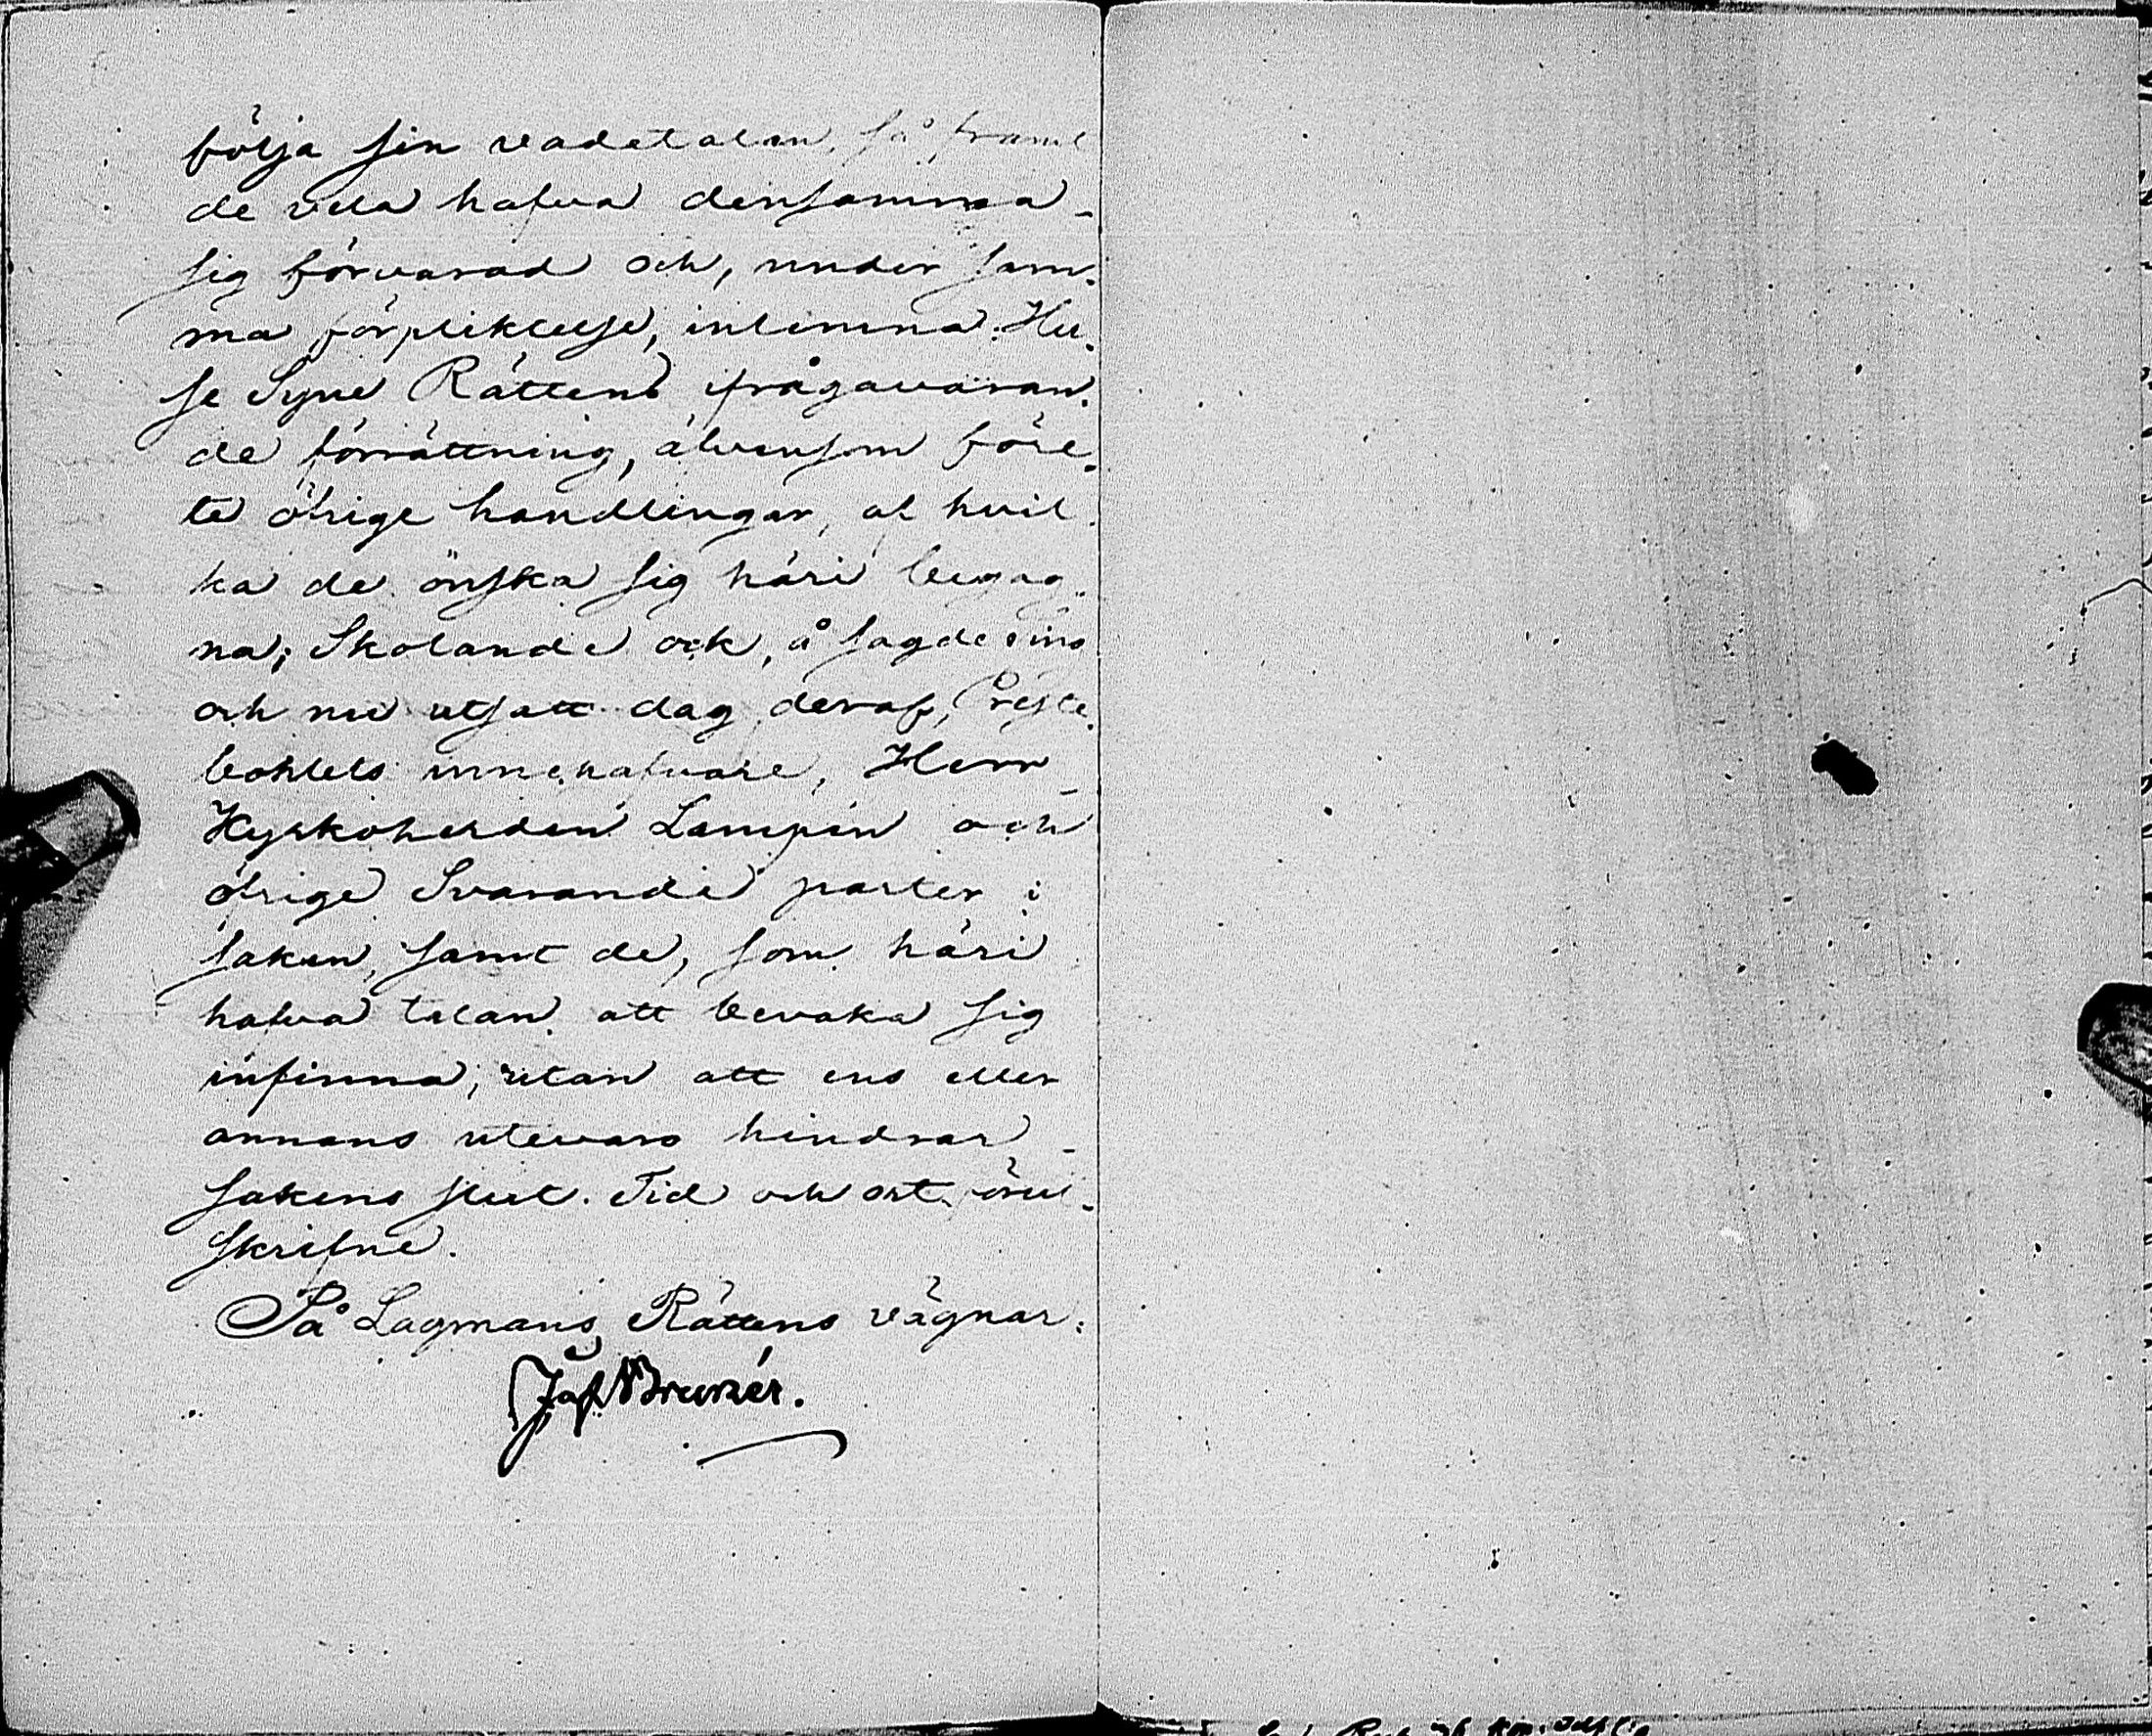 följa sin vadetalan, så framt
de vela hafva densamma
sig förvarad och, under sam-
ma förpliktelse, inlemna Hu-
se Syne Rättens ifrågavaran-
de förrättning, älvensom före-
te öfrige handlingar, af hvil-
ka de önska sig häri begag-
na; Skolande ock, å sagde ting
och nu utsatt dag deraf, Preste-
bohlets innehafvare, Herr
Kyrkoherden Lampén och
öfrige Svarande parter i
saken, samt de, som häri
hafva talan att bevaka sig
infinna, utan att ens eller
annans utevaro hindrar
sakens slut. Tid och ort förut
skrifne.
På Lagmans Rättens vägnar: